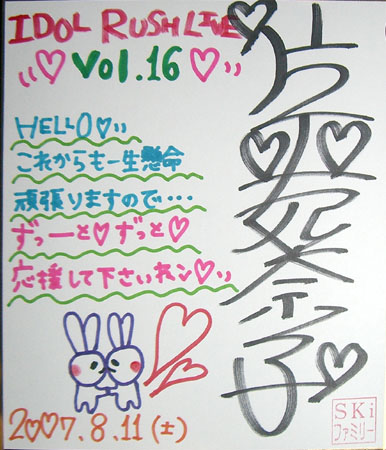 IDOL RUSH LIVE
♡ Vol.16 ♡
HELLO♡
これからも一生懸命
頑張りますので・・・
ずっーと♡ずっと♡
応援して下さいねッ♡
妃奈子
2♡♡7.8.11(土)
SKi
ファミリー